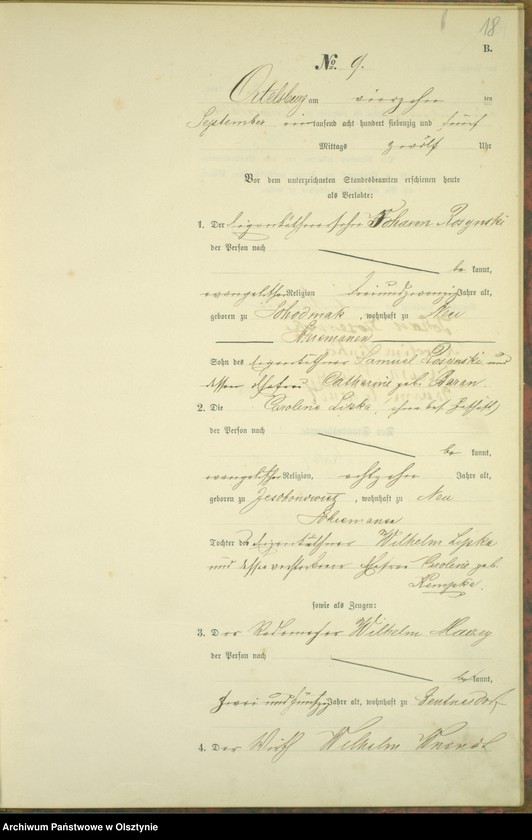 18
B.
No. 9.
Ortelsburg am vierzehn ten
September eintausend acht hundert siebenzig und fünf
Mittags zwölf Uhr
Vor dem unterzeichneten Standesbeamten erschienen heute
als Verlobte:
1. Der Eigenthümersohn Johann Rosynski
der Person nach
be kannt,
evangelischer Religion dreiundzwanzig Jahre alt,
geboren zu Schodmak, wohnhaft zu Neu
Sohn des Eigenthümer Samuel Rosynski und
dessen Ehefrau Catharine geb. Baran
2. Die Caroline Lipka, ohne bes.
der Person nach
be kannt,
evangelischer Religion, achtzehn Jahre alt,
geboren zu, wohnhaft zu Neu
Tochter des Eigenthümer Wilhelm Lipka
und dessen verstorbenen Ehefrau Caroline geb.
Kempka.
sowie als Zeugen:
3. Der Wilhelm
der Person nach
be kannt,
zwei und fünfzig Jahre alt, wohnhaft zu Beutnerdorf
4. Der Wirth Wilhelm
Archiwum Państwowe w Olsztynie